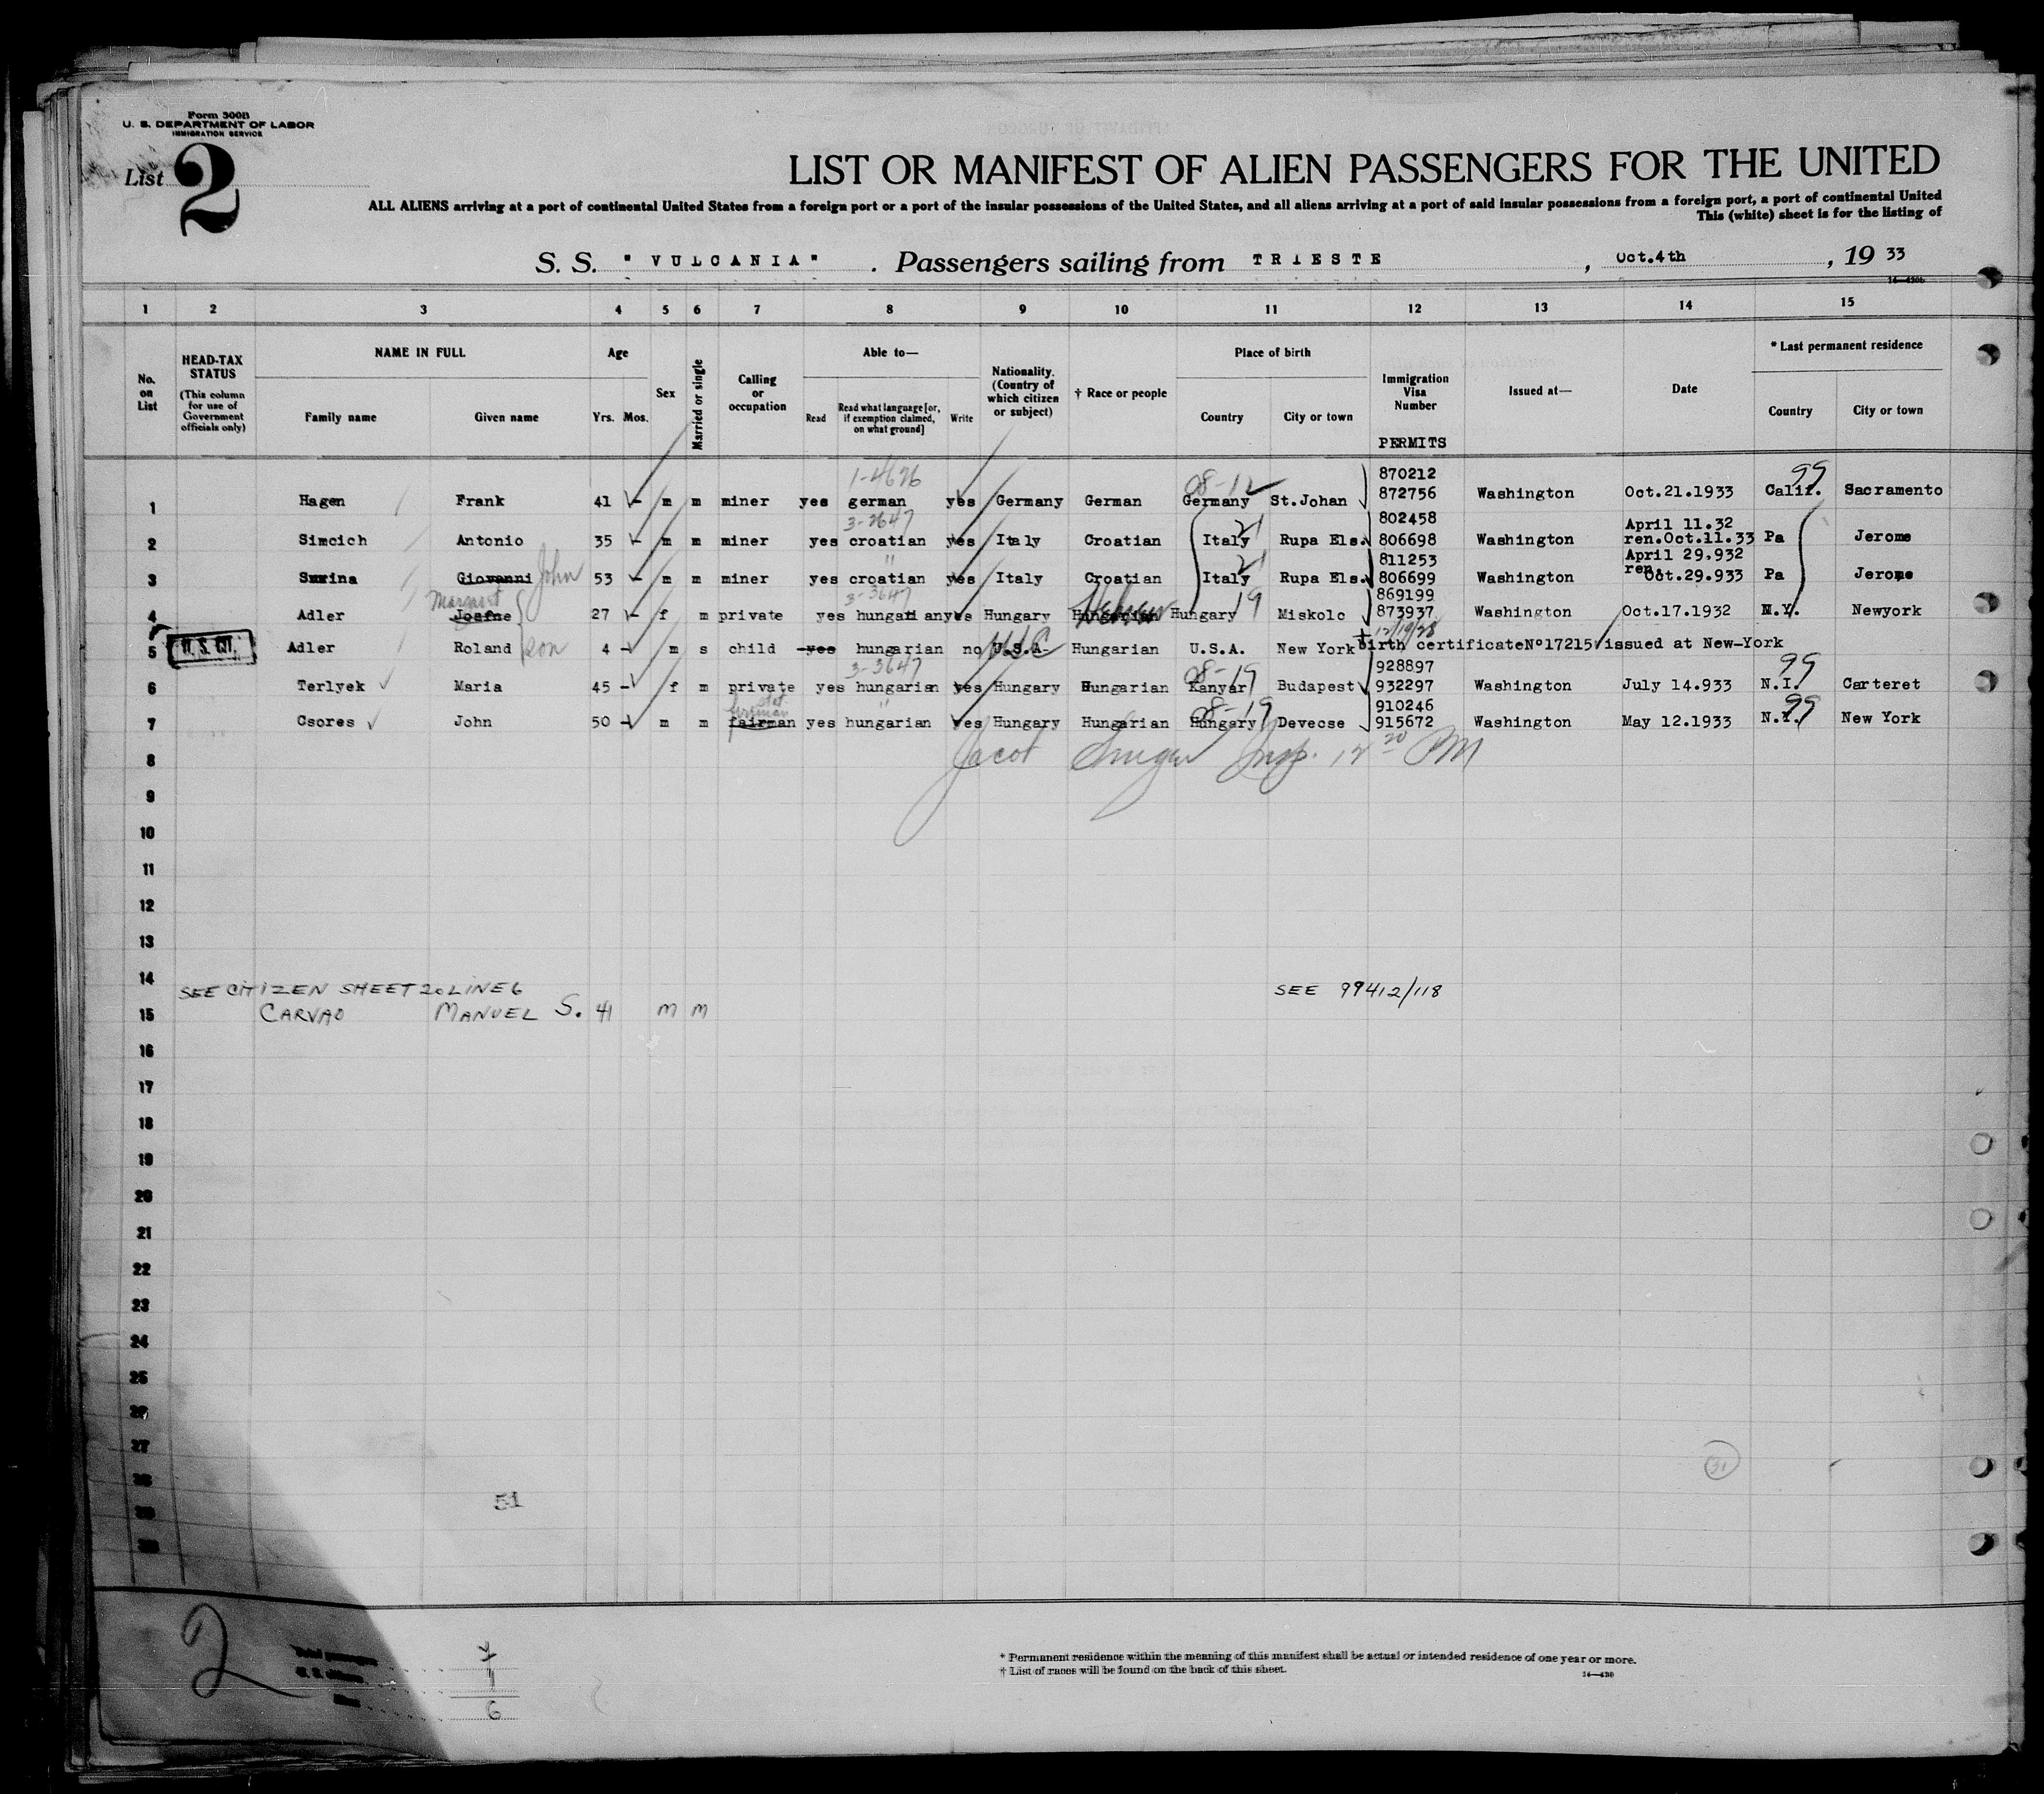 Form 500B
U. S. DEPARTMENT OF LABOR
IMMIGRATION SERVICE
List 2
LIST OR MANIFEST OF ALIEN PASSENGERS FOR THE UNITED
ALL ALIENS arriving at a port of continental United States from a foreign port or a port of the insular possessions of the United States, and all aliens arriving at a port of said insular possessions from a foreign port, a port of continental United
This (white) sheet is for the listing of
S. S. "VULCANIA". Passengers sailing from TRIESTE, Oct.4th, 1933
1 2 3 4 5 6 7 8 9 10 11 12 13 14 15
No. on List
HEAD-TAX STATUS (This column for use of Government officials only)
NAME IN FULL Family name Given name
Age Yrs. Mos.
Sex
Married or single
Calling or occupation
Able to— Read Read what language [or, if exemption claimed, on what ground] Write
Nationality. (Country of which citizen or subject)
† Race or people
Place of birth Country City or town
Immigration Visa Number PERMITS
Issued at—
Date
* Last permanent residence Country City or town
1-4626 08-12 870212 99
1 Hagen Frank 41 m m miner yes german yes Germany German Germany St.Johan 872756 Washington Oct.21.1933 Calif. Sacramento
3-2647 21 802458 April 11.32
2 Simcich Antonio 35 m m miner yes croatian yes Italy Croatian Italy Rupa Els. 806698 Washington ren.Oct.11.33 Pa Jerome
" 21 811253 April 29.932
3 Surina Giovanni John 53 m m miner yes croatian yes Italy Croatian Italy Rupa Els. 806699 Washington ren. Oct.29.933 Pa Jerome
Margaret 3-3647 869199
4 Adler 27 f m private yes hungarian yes Hungary Hungarian Hebrew Hungary 19 Miskolc 873937 Washington Oct.17.1932 N.Y. Newyork
12/19/28
5 U. S. CIT. Adler Roland son 4 m s child yes hungarian no U.S.A. Hungarian U.S.A. New York Birth certificateNo17215 issued at New-York
3-3647 08-19 928897 99
6 Terlyek Maria 45 f m private yes hungarian yes Hungary Hungarian Kanyar Budapest 932297 Washington July 14.933 N.I. Carteret
" 08-19 910246 99
7 Csores John 50 m m fairman yes hungarian yes Hungary Hungarian Hungary Devecse 915672 Washington May 12.1933 N.Y. New York
8 Jacob Insp. 12 20 PM
9
10
11
12
13
14
SEE CITIZEN SHEET 20 LINE 6 SEE 99412/118
15 CARVAO MANUEL S. 41 m m
16
17
18
19
20
21
22
23
24
25
26
27
28
29
30
31
51
2
Total passengers 7
U. S. citizens 1
Aliens 6
* Permanent residence within the meaning of this manifest shall be actual or intended residence of one year or more.
† List of races will be found on the back of this sheet.
14—430